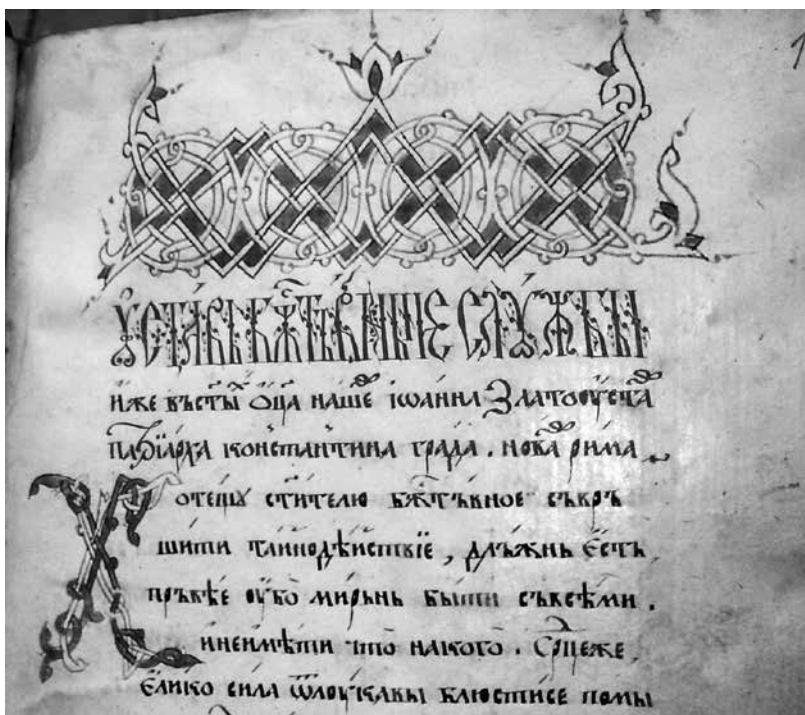 1
Оу҆ста́въ бж҃тв́ныѥ слꙋ́жбы
и҆́же въст҃ы́хъ ѻ҆ц҃а на́шеⷢ҇ і҆ѡа́нна Златоꙋ́стаⷢ҇
патрїа́рха константина гра́да . но́ваⷢ҇ ри́ма
Хотещꙋ ст҃ителю бж҃тъвное съвръ
шити таинодѣ́иствїе , длъ́жнь є҆́сть
пръвѣ́е оу҆́бо ми́рьнь бы́ти съвсѣ́ми .
инеимѣ́ти что̀ нако́го . Ср҃цеже
є҆ли́ко си́ла ѿлоука́вы блюстисе помы